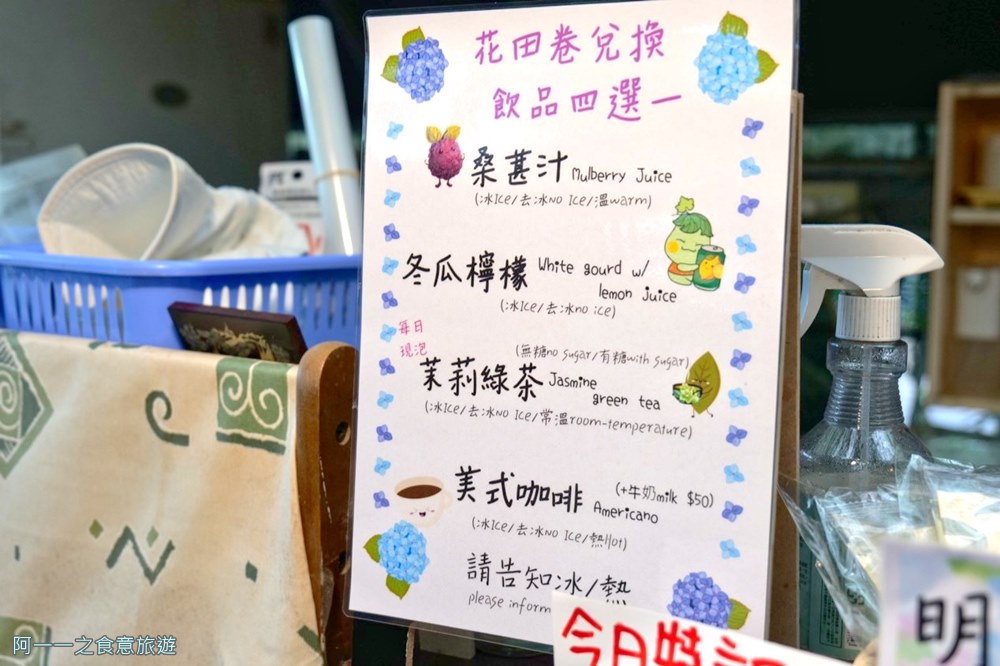 花田卷兌換
飲品四選一
桑葚汁 Mulberry Juice
(冰ICE/去冰NO ICE/溫warm)
冬瓜檸檬 White gourd w/
lemon juice
(冰ICE/去冰no ice)
每日
現泡
(無糖no sugar/有糖with sugar)
茉莉綠茶 Jasmine
green tea
(冰ICE/去冰NO ICE/常溫room-temperature)
美式咖啡 (+牛奶milk $50)
Americano
(冰ICE/去冰NO ICE/熱Hot)
請告知冰/熱
please inform
今日特
明
阿一一之食意旅遊